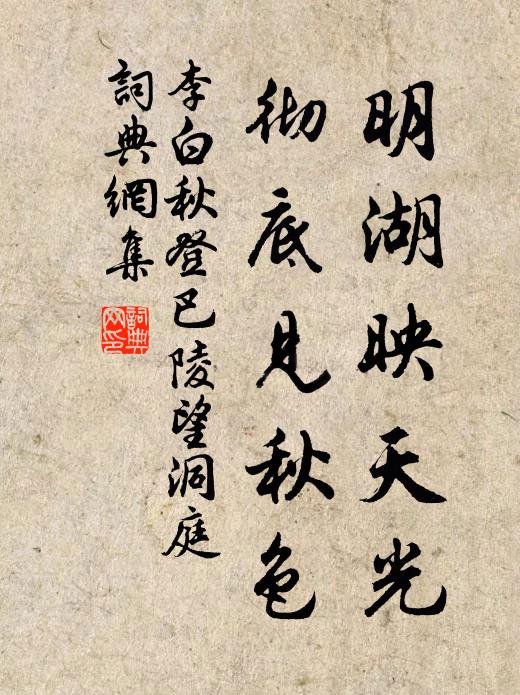 明湖映天光
彻底見秋色
李白秋登巴陵望洞庭
詞典網集
詞典网印